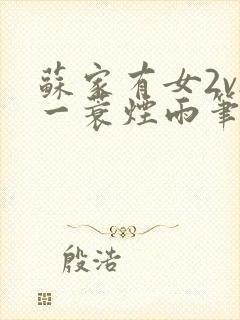 蘇家有女2v
一蓑煙雨筆
殷浩